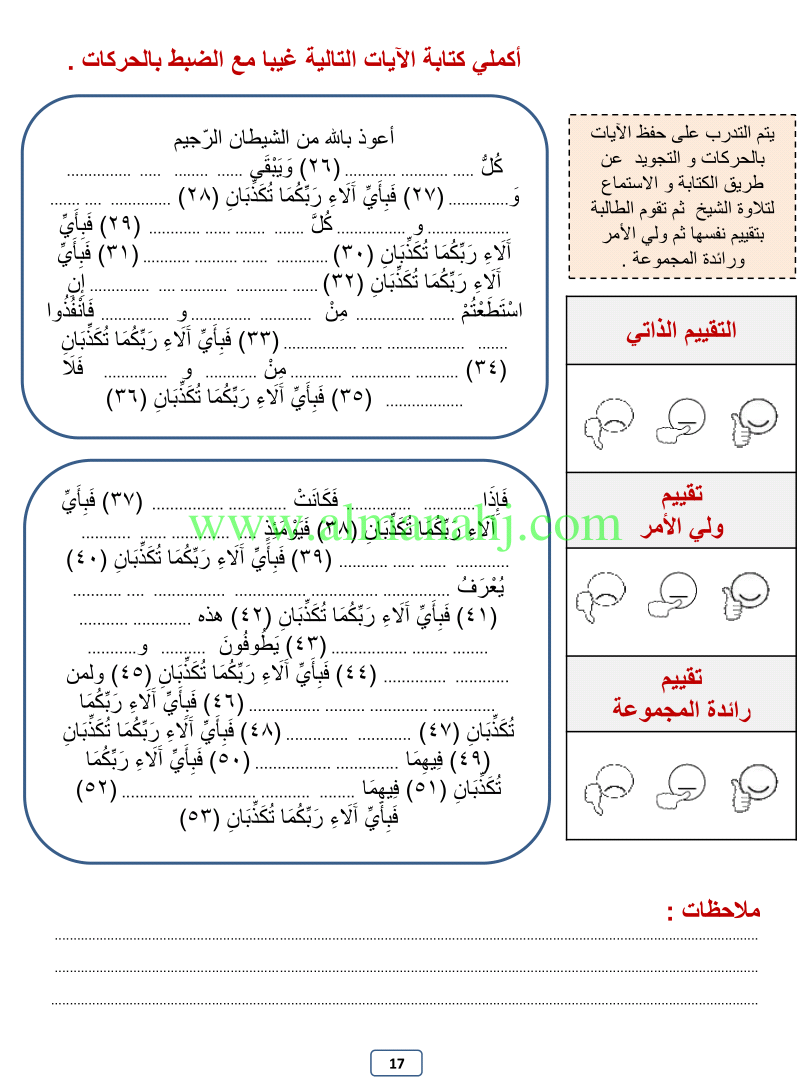 أكملي كتابة الآيات التالية غيبا مع الضبط بالحركات .
يتم التدرب على حفظ الآيات
بالحركات و التجويد عن
طريق الكتابة و الاستماع
لتلاوة الشيخ ثم تقوم الطالبة
بتقييم نفسها ثم ولي الأمر
ورائدة المجموعة .
أعوذ بالله من الشيطان الرّجيم
كُلُّ ..... ........... ............ (٢٦) وَيَبْقَى ................ ..... ...............
وَ.............. (٢٧) فَبِأَيِّ آَلَاءِ رَبِّكُمَا تُكَذِّبَانِ (٢٨) .............. .... .......
................... و ................ كُلَّ ....... ....... ...... ............ (٢٩) فَبِأَيِّ
آَلَاءِ رَبِّكُمَا تُكَذِّبَانِ (٣٠) ............ ...... ....... ........... (٣١) فَبِأَيِّ
آَلَاءِ رَبِّكُمَا تُكَذِّبَانِ (٣٢) ...... ............ ........... .... ............... إِنِ
اسْتَطَعْتُمْ ...... ................ مِنْ ............ .............. و ................ فَانْفُذُوا
....... ........................ ................. (٣٣) فَبِأَيِّ آَلَاءِ رَبِّكُمَا تُكَذِّبَانِ
(٣٤) .......... .............. ............ مِنْ ............ و ............... فَلَا
.................. (٣٥) فَبِأَيِّ آَلَاءِ رَبِّكُمَا تُكَذِّبَانِ (٣٦)
التقييم الذاتي
تقييم
ولي الأمر
تقييم
رائدة المجموعة
فَإِذَا ................ ............... فَكَانَتْ ............... ................ (٣٧) فَبِأَيِّ
آَلَاءِ رَبِّكُمَا تُكَذِّبَانِ (٣٨) فَيَوْمَئِذٍ ...... ........ ...... ............
............ ...... ..... ........... (٣٩) فَبِأَيِّ آَلَاءِ رَبِّكُمَا تُكَذِّبَانِ (٤٠)
يُعْرَفُ ................ .................... ................. .... ...........
(٤١) فَبِأَيِّ آَلَاءِ رَبِّكُمَا تُكَذِّبَانِ (٤٢) هذه ............. ...........
........ ........ ................. (٤٣) يَطُوفُونَ .......... و...........
............ .............. (٤٤) فَبِأَيِّ آَلَاءِ رَبِّكُمَا تُكَذِّبَانِ (٤٥) ولمن
.............. ............. ......... ................ (٤٦) فَبِأَيِّ آَلَاءِ رَبِّكُمَا
تُكَذِّبَانِ (٤٧) ............ .............. (٤٨) فَبِأَيِّ آَلَاءِ رَبِّكُمَا تُكَذِّبَانِ
(٤٩) فِيهِمَا .............. ................. (٥٠) فَبِأَيِّ آَلَاءِ رَبِّكُمَا
تُكَذِّبَانِ (٥١) فِيهِمَا ........ ........... ............. ................ (٥٢)
فَبِأَيِّ آَلَاءِ رَبِّكُمَا تُكَذِّبَانِ (٥٣)
www.almanahj.com
ملاحظات :
17